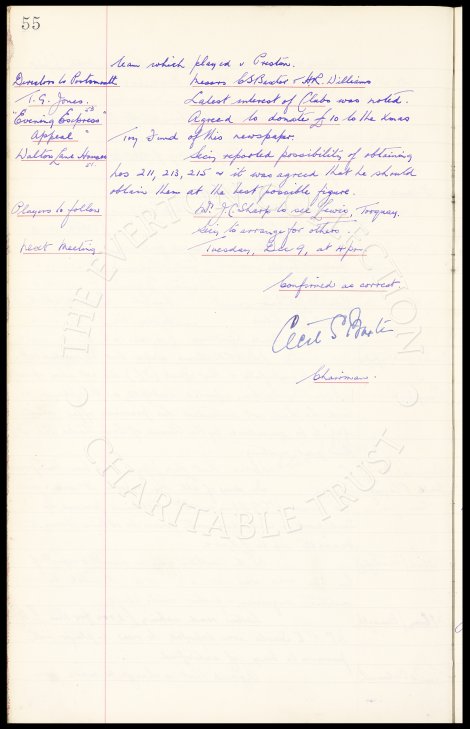 55
team which played v Preston.
Directors to Portsmouth Messrs C S Baxter & H.R. Williams
T. G. Jones. Latest interest of Clubs was noted.
"Evening Express" Agreed to donate £10 to the Xmas
Appeal " Toy Fund of this newspaper.
Walton Lane Houses Secy reported possibility of obtaining
nos 211, 213, 215 & it was agreed that he should
obtain them at the best possible figure.
Players to follow Dr. J.C. Sharp to see Lewis, Torquay.
Secy to arrange for others.
Next Meeting Tuesday, Dec 9, at 4pm
Confirmed as correct
Cecil S Baxter
Chairman.
THE EVERTON COLLECTION
CHARITABLE TRUST